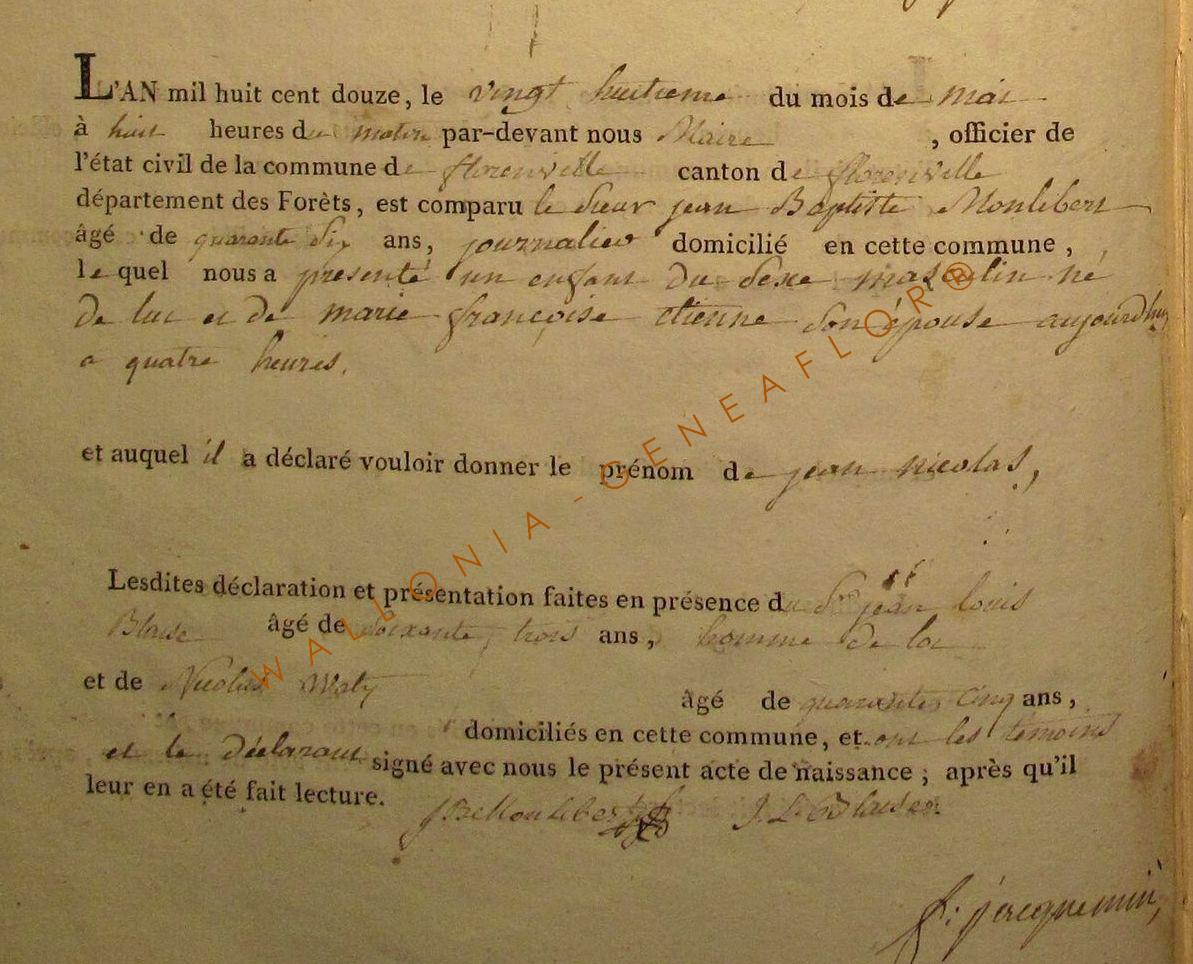 L'AN mil huit cent douze, le vingt huitieme du mois de mai
à huit heures du matin par-devant nous Maire , officier de
l'état civil de la commune de florenville canton de florenville
département des Forêts, est comparu le Sieur jean Baptiste Monlibert
âgé de quarante Six ans, journalier domicilié en cette commune,
le quel nous a presenté un enfant du Sexe masculin né
de lui et de marie françoise etienne Son épouse aujourdhuy
a quatre heures.
et auquel il a déclaré vouloir donner le prénom de jean nicolas,
Lesdites déclaration et présentation faites en présence du Sr jean louis
Blaise âgé de Soixante trois ans, homme de loi
et de Nicolas Waty âgé de quarante cinq ans,
domiciliés en cette commune, et ont les témoins
et le déclarant signé avec nous le présent acte de naissance; après qu'il
leur en a été fait lecture.
JB Monlibert J. L. Blaise
jacquemin
WALLONIA-GENEAFLOR®